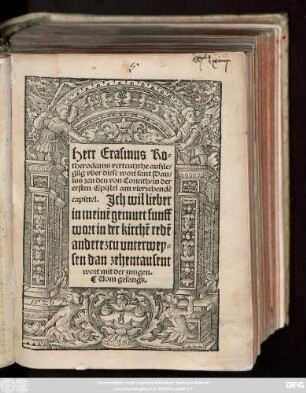 Herr Erasmus Ro-
therodamus verteutschte auszle-
gūg vber diese wort sant Pau-
lus zcu den von Corinthi in der
ersten Epistel am vierzehendē
capittel. Ich wil lieber
in meinē gemuet funff
wort in der kirchē redē
andere zcu vnterwey-
sen dan zehentausent
wort mit der zungen.
¶ Vom gesangk.